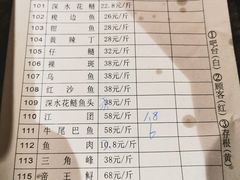 101 深水花鲢 22.8元/斤
102 梭边鱼 26元/斤
103 鲤鱼 28元/斤
104 黄辣丁 28元/斤
105 仔鲢 32元/斤
106 裸斑 38元/斤
107 乌鱼 38元/斤
108 红沙鱼 38元/斤
109 深水花鲢鱼头 38元/斤
110 江团 58元/斤 1.8
111 牛尾巴鱼 58元/斤 6
112 鱼肉 10.8元/斤
113 三角峰 38元/斤
115 帝王鲟
①吧台(白) ②顾客(红) ③存根(黄)